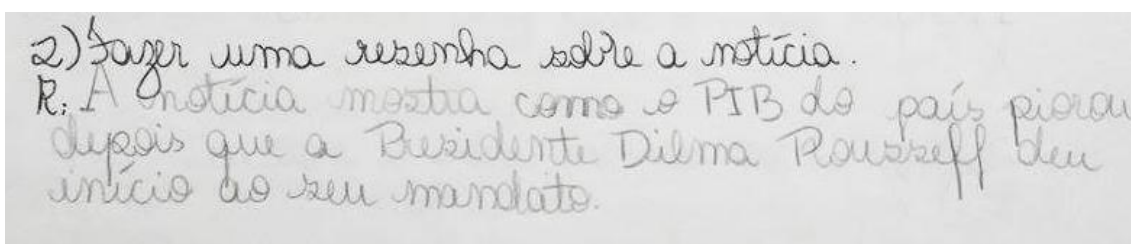 2) Fazer uma resenha sobre a notícia.
R: A notícia mostra como o PIB do país piorou
depois que a Presidente Dilma Rousseff deu
início ao seu mandato.